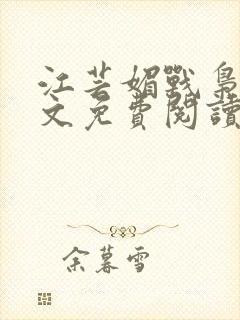 江芸媚戰梟
文免費閱讀
余暮雪